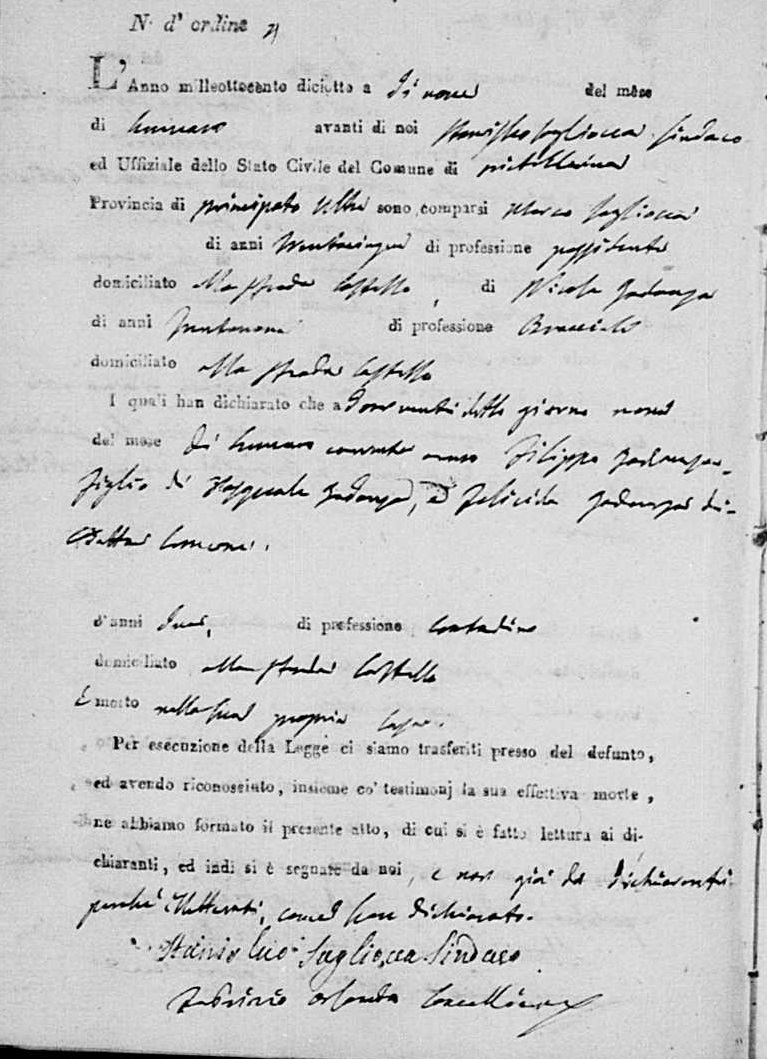 N. d' ordine
L'Anno milleottocento diciotto a di nove del mese
di Gennaro avanti di noi Stanislao Sagliocca Sindaco
ed Uffiziale dello Stato Civile del Comune di
Provincia di principato Ultra sono comparsi Marco Sagliocca
di anni trentacinque di professione possidente
domiciliato alla strada Castello, di Nicola
di anni trentanove di professione Bracciale
domiciliato alla strada Castello
I quali han dichiarato che a detto giorno nove
del mese di Gennaro corrente Filippo
figlio di Pasquale, e Felicia di-
detto Comune.
d'anni due, di professione contadino
domiciliato alla strada Castello
È morto nella sua propria casa.
Per esecuzione della Legge ci siamo trasferiti presso del defunto,
ed avendo riconosciuto, insieme co' testimonj la sua effettiva morte,
ne abbiamo formato il presente atto, di cui si è fatto lettura ai di-
chiaranti, ed indi si è segnato da noi, e non già da dichiaranti
perché illetterati, come han dichiarato.
Stanislao Sagliocca Sindaco
Fabrizio Orlando Cancelliere